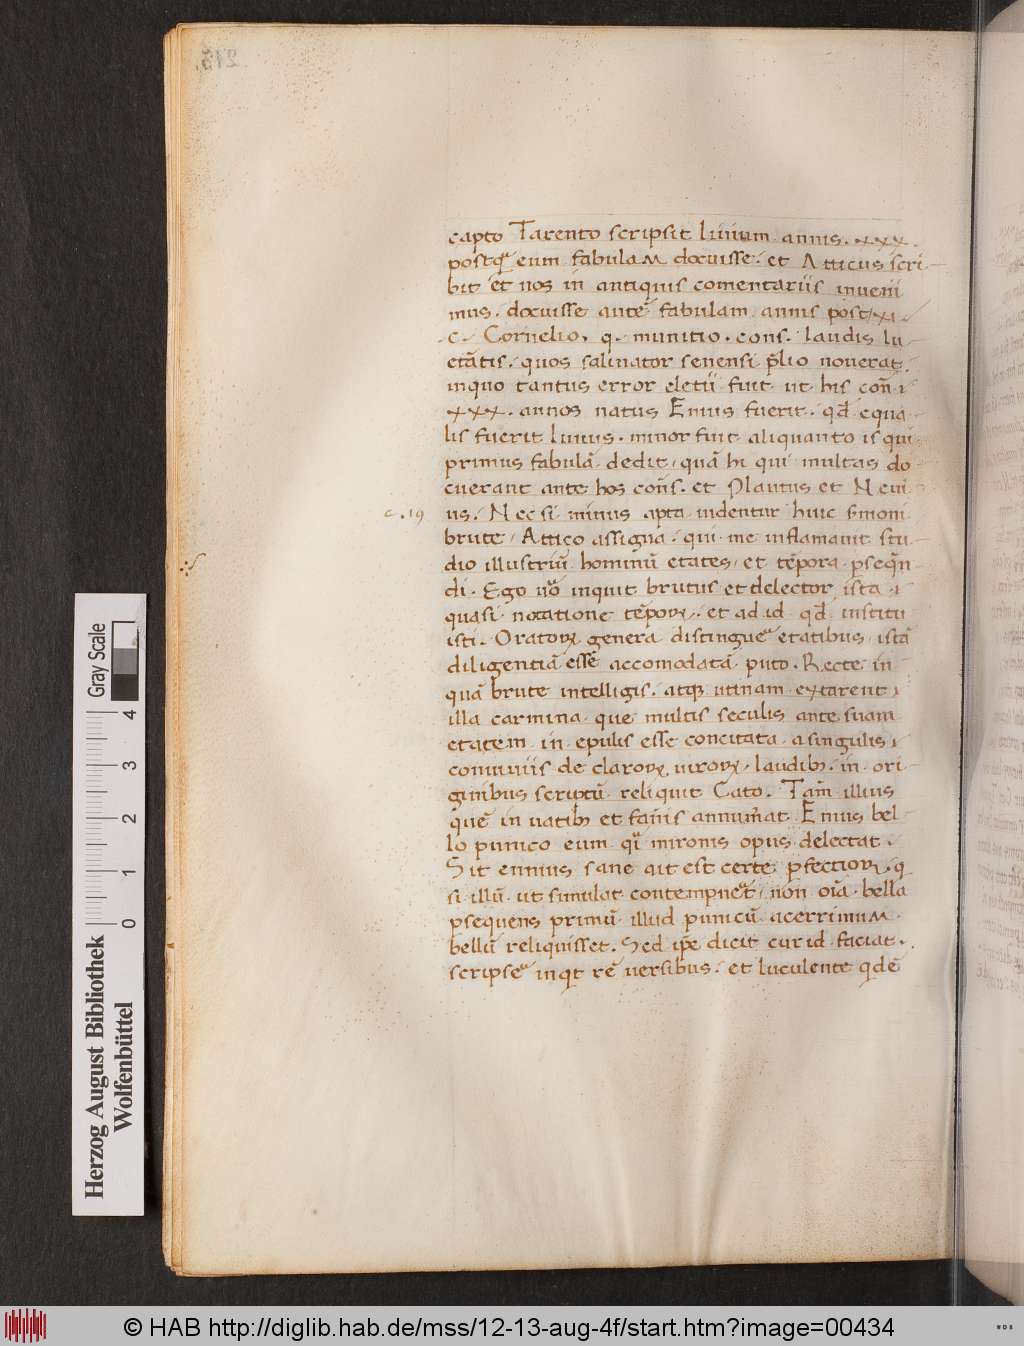 capto Tarento scripsit Liuium annis. xxx.
postq̃ eum fabulaM docuisse. et Atticus scri
bit et nos in antiquis comentariis inueni
mus. docuisse autẽ fabulam annis post xi
C. Cornelio, q. munitio. cons. laudis lu
etãtis. quos salinator senensi p̃lio nouerat.
inquo tantus error eletũ fuit ut his coñ
xxx. annos natus Enius fuerit. qđ equa
lis fuerit liuius. minor fuit aliquanto is qui
primus fabulã dedit, quã hi qui multas do
cuerant ante hos coñs. et Plautus et Neui
c. 19 us. Nec si minus apta uidentur huic s̃moni
brute, Attico assigna. qui me inflamauit stu
dio illustriũ hominũ etates, et tẽpora p̱seqñ
di. Ego ũo inquit brutus et delector ista
quasi notatione tẽpoꝝ. et ad id qđ institu
isti. Oratoꝝ genera distinguẽ etatibus, istã
diligentiã esse accomodatã puto. Recte in
quã brute intelligis. atqꝫ utinam extarent
illa carmina que multis seculis ante suam
etatem in epulis esse concitata a singulis
conuiuiis de claroꝝ uiroꝝ laudibꝫ. in ori
ginibus scriptũ reliquit Cato. Tam̃ illius
quẽ in uatibꝫ et fañis annum̃at Enius bel
lo punico eum qͥ mironis opus delectat
Sit ennius sane ait est certe ꝑfectioꝝ. q
si illũ ut simulat contempneret, non oĩa bella
ꝑsequens primũ illud punicũ acerrimuM
bellũ reliquisset. Sed ip̃e dicit cur id faciat.
scripsẽ inqͥt rẽ uersibus. et luculente qͥdẽ
215.
Gray Scale
0 1 2 3 4
Herzog August Bibliothek
Wolfenbüttel
© HAB http://diglib.hab.de/mss/12-13-aug-4f/start.htm?image=00434
WDB